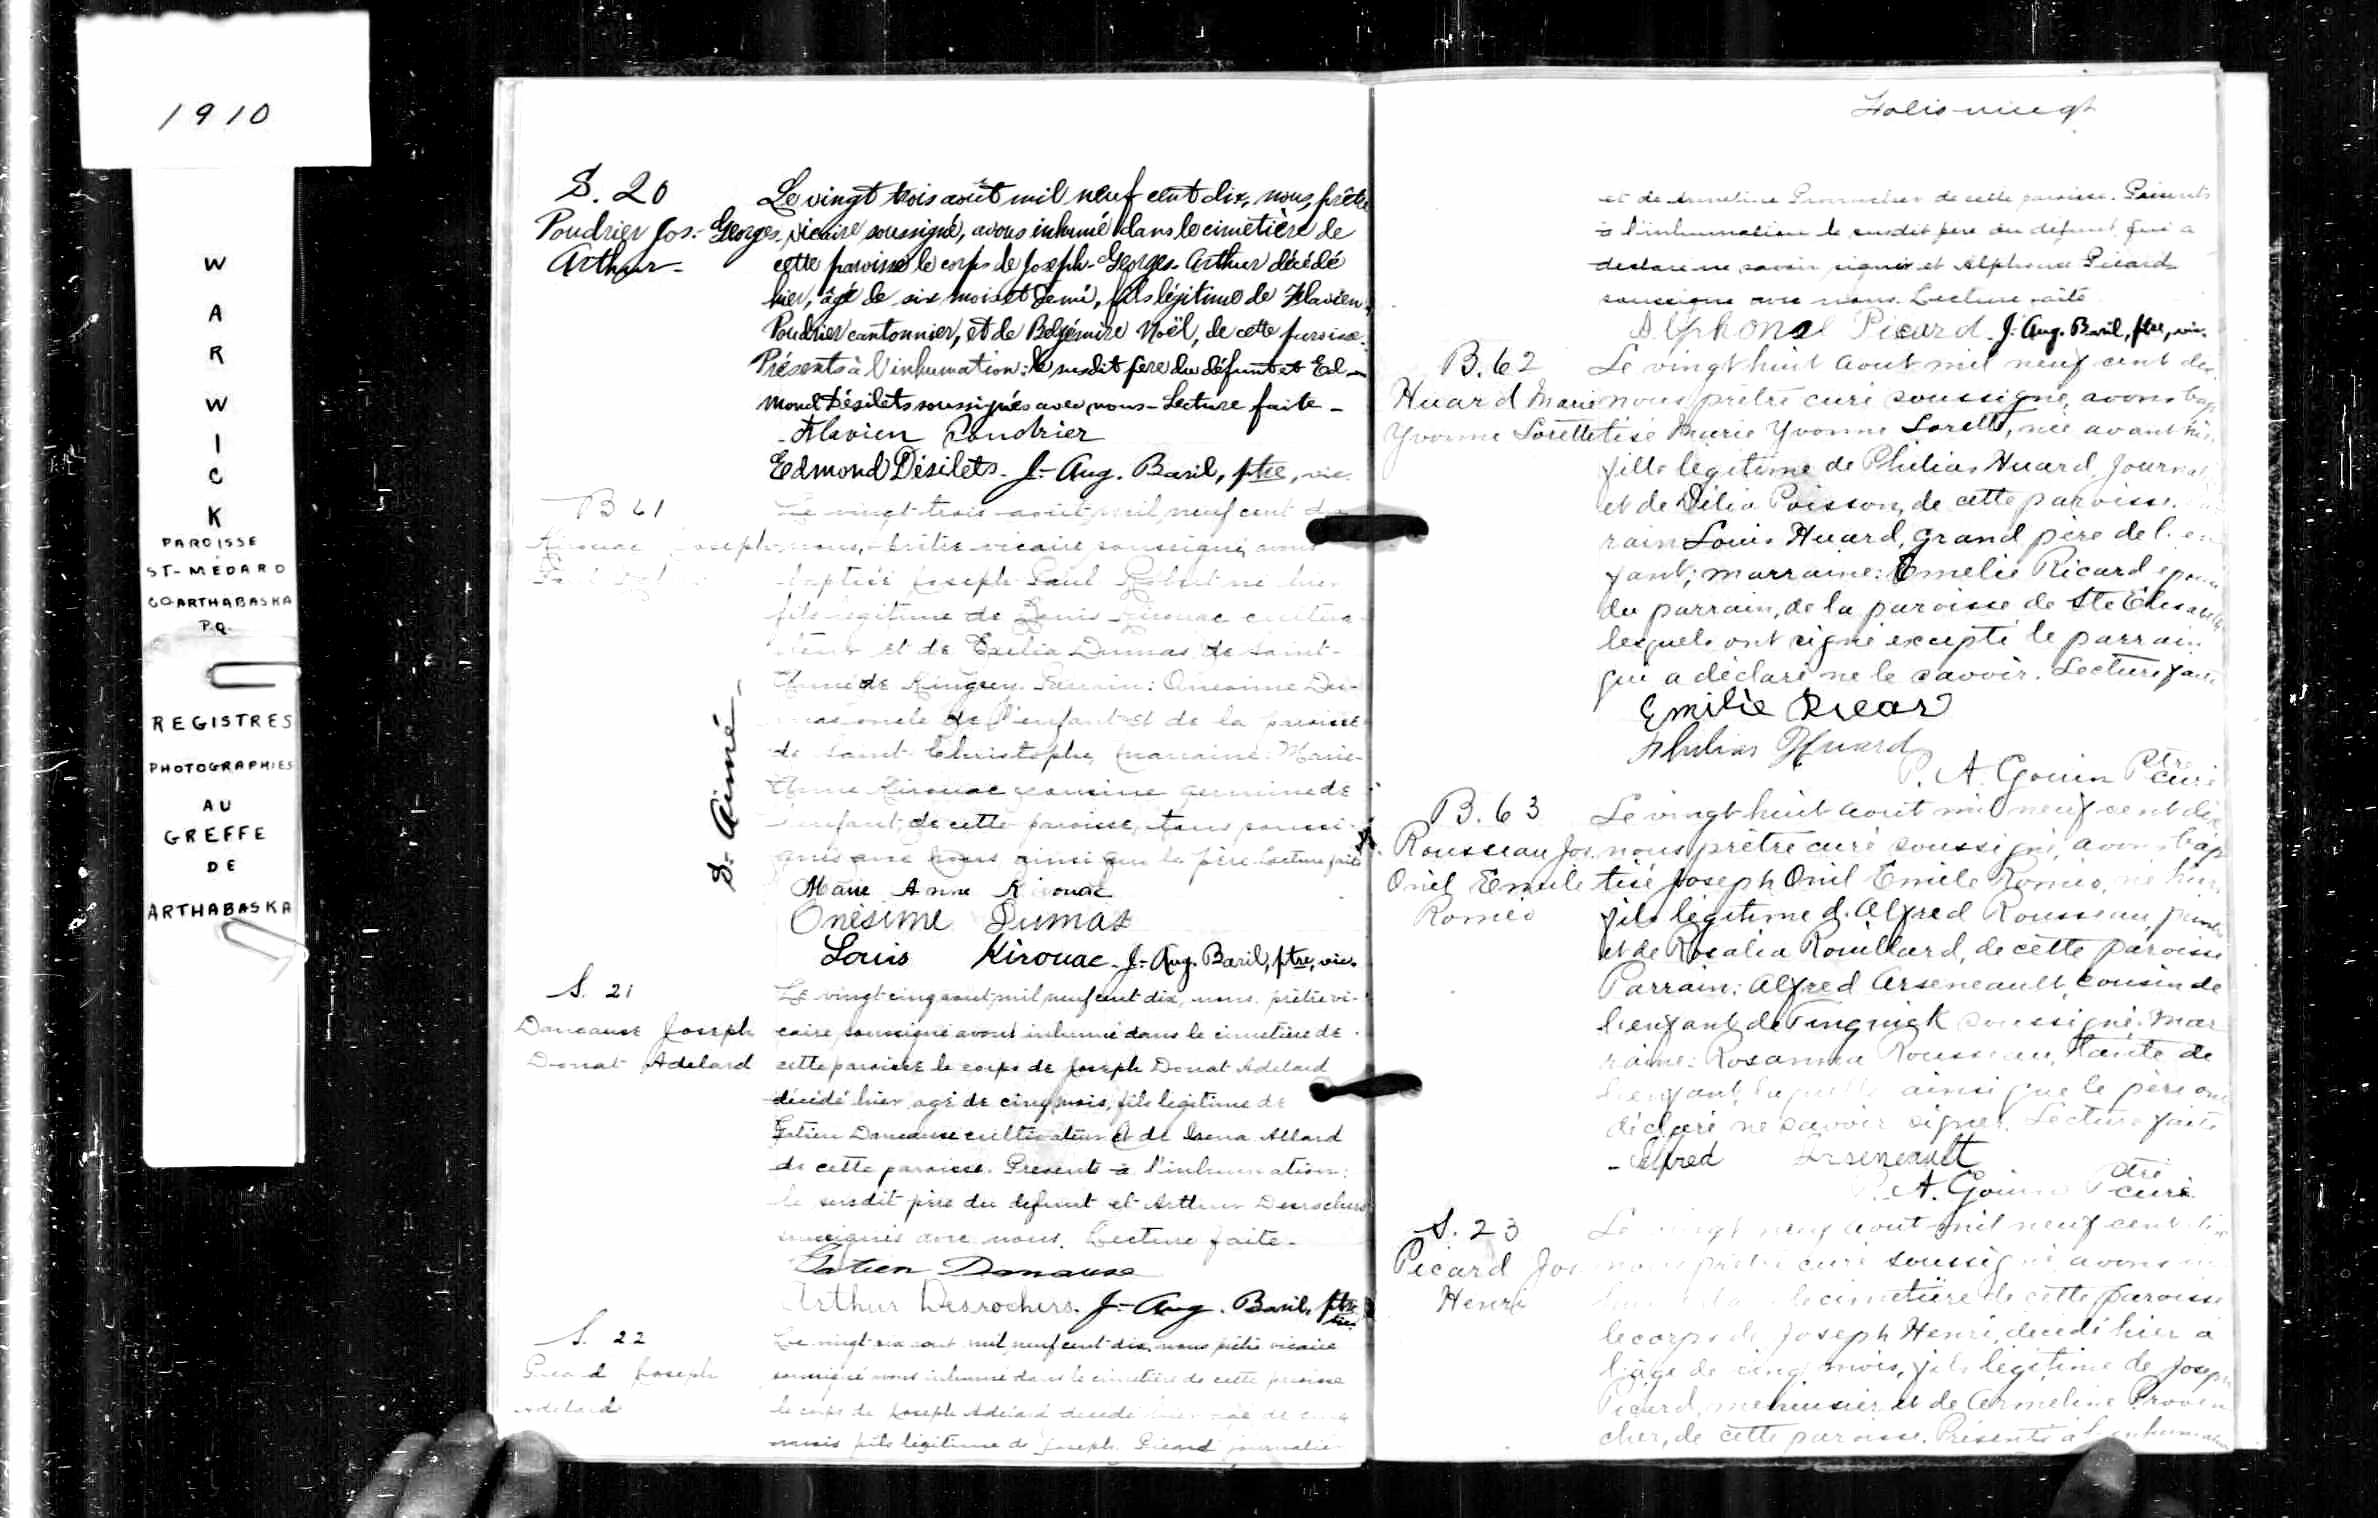 1910
WARWICK
PAROISSE
ST-MÉDARD
CO ARTHABASKA
P.Q.
REGISTRES
PHOTOGRAPHIES
AU
GREFFE
DE
ARTHABASKA
S. 20
Poudrier Jos.- Georges-
Arthur-
Le vingt trois août mil neuf cent dix, nous, prêtre
vicaire soussigné, avons inhumé dans le cimetière de
cette paroisse le corps de Joseph-Georges-Arthur décédé
hier, âgé de six mois et demi, fils légitime de Flavien
Poudrier cantonnier, et de Noël, de cette paroisse.
Présents à l'inhumation: le susdit père du défunt et Ed-
mond Désilets soussignés avec nous - Lecture faite -
Flavien Poudrier
Edmond Désilets - J.-Aug. Baril, ptre, vic.
B 61
Kirouac Joseph
Le vingt trois août mil neuf cent dix
nous, prêtre vicaire soussigné, avons
baptisé Joseph Paul Robert né hier
fils légitime de Louis Kirouac cultiva-
teur et de Exelia Dumas de Saint-
Aimé de Kingsey. Parrain: Onésime Du-
mas oncle de l'enfant et de la paroisse
de Saint-Christophe, marraine: Marie-
Anne Kirouac cousine germaine de
l'enfant, de cette paroisse, tous soussi-
gnés avec nous ainsi que le père. Lecture faite
St Aimé -
Marie Anne Kirouac
Onésime Dumas
Louis Kirouac - J.-Aug. Baril, ptre, vic.
S. 21
Daneause Joseph
Donat Adelard
Le vingt cinq août mil neuf cent dix, nous, prêtre vi-
caire soussigné avons inhumé dans le cimetière de
cette paroisse le corps de Joseph Donat Adelard
décédé hier agé de cinq mois, fils légitime de
Gatien Daneause cultivateur et de Allard
de cette paroisse. Présents à l'inhumation:
le susdit père du défunt et Arthur Desrochers
soussignés avec nous. Lecture faite -
Gatien Daneause
Arthur Desrochers. J.-Aug. Baril, ptre
vic.
S. 22
Picard Joseph
Adelard
Le vingt six août mil neuf cent dix, nous prêtre vicaire
soussigné avons inhumé dans le cimetière de cette paroisse
le corps de Joseph Adelard décédé hier agé de cinq
mois fils légitime de Joseph Picard journalier
Folio vingt
et de Armeline Provencher de cette paroisse. Présents
à l'inhumation le susdit père du défunt qui a
déclaré ne savoir signer et Alphonse Picard
soussigné avec nous. Lecture faite
Alphonse Picard - J-Aug. Baril, ptre, vic.
B. 62
Huard Marie
Yvonne Lorette
Le vingt huit aout mil neuf cent dix
nous prêtre curé soussigné, avons bap
tisé Marie Yvonne Lorette, née avant hier
fille légitime de Philias Huard, Journal
et de Délia Poisson, de cette paroisse.
rain Louis Huard, grand père de l'en
fant; marraine: Emelie Ricard épouse
du parrain, de la paroisse de Ste Élisabeth
lesquels ont signé excepté le parrain
qui a déclaré ne le savoir. Lecture faite
Emilie Ricar
Philias Huard
P. A. Gouin Ptre
curé
B. 63
Rousseau Jos.
Onil Emile
Roméo
Le vingt huit aout mil neuf cent dix
nous prêtre curé soussigné, avons bap
tisé Joseph Onil Emile Roméo, né hier,
fils légitime d'Alfred Rousseau,
et de Rosalia Rouillard, de cette paroisse
Parrain: Alfred Arseneault, cousin de
l'enfant de Tingwick soussigné. Mar
raine: Rosanna Rousseau, tante de
l'enfant, laquelle ainsi que le père ont
déclaré ne savoir signer. Lecture faite
- Alfred Arseneault
P. A. Gouin Ptre
curé
S. 23
Picard Jos
Henri
Le vingt neuf aout mil neuf cent dix
nous prêtre curé soussigné avons in
humé dans le cimetière de cette paroisse
le corps de Joseph Henri, décédé hier à
l'âge de cinq mois, fils légitime de Joseph
Picard, menuisier et de Armeline Proven
cher, de cette paroisse. Présents à l'inhumation